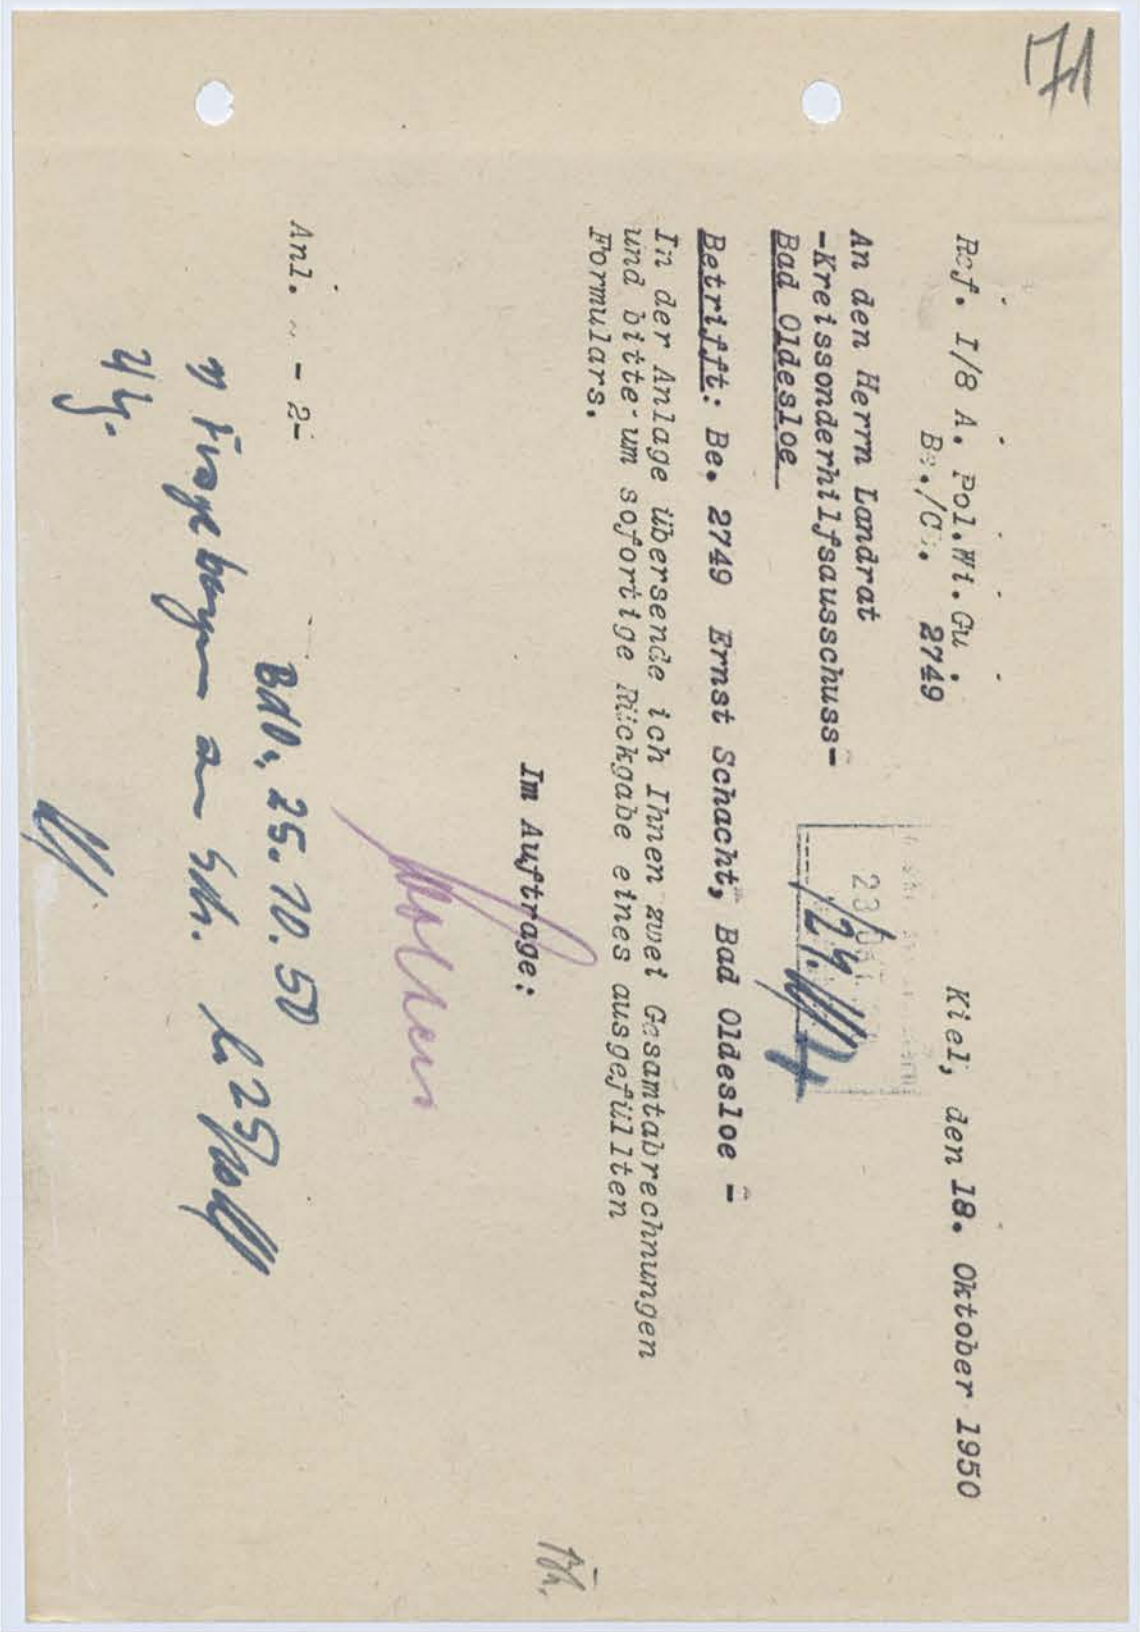 171
Ref. I/8 A. Pol.Wi.Gu
Be./C. 2749
Kiel, den 18. Oktober 1950
An den Herrn Landrat
-Kreissonderhilfsausschuss-
Bad Oldesloe
23
24.
Betrifft: Be. 2749 Ernst Schacht, Bad Oldesloe -
In der Anlage übersende ich Ihnen zwei Gesamtabrechnungen
und bitte um sofortige Rückgabe eines ausgefüllten
Formulars.
Im Auftrage:
Anl. - 2-
BdO., 25. 10. 50
1) Fragebogen an Sch.